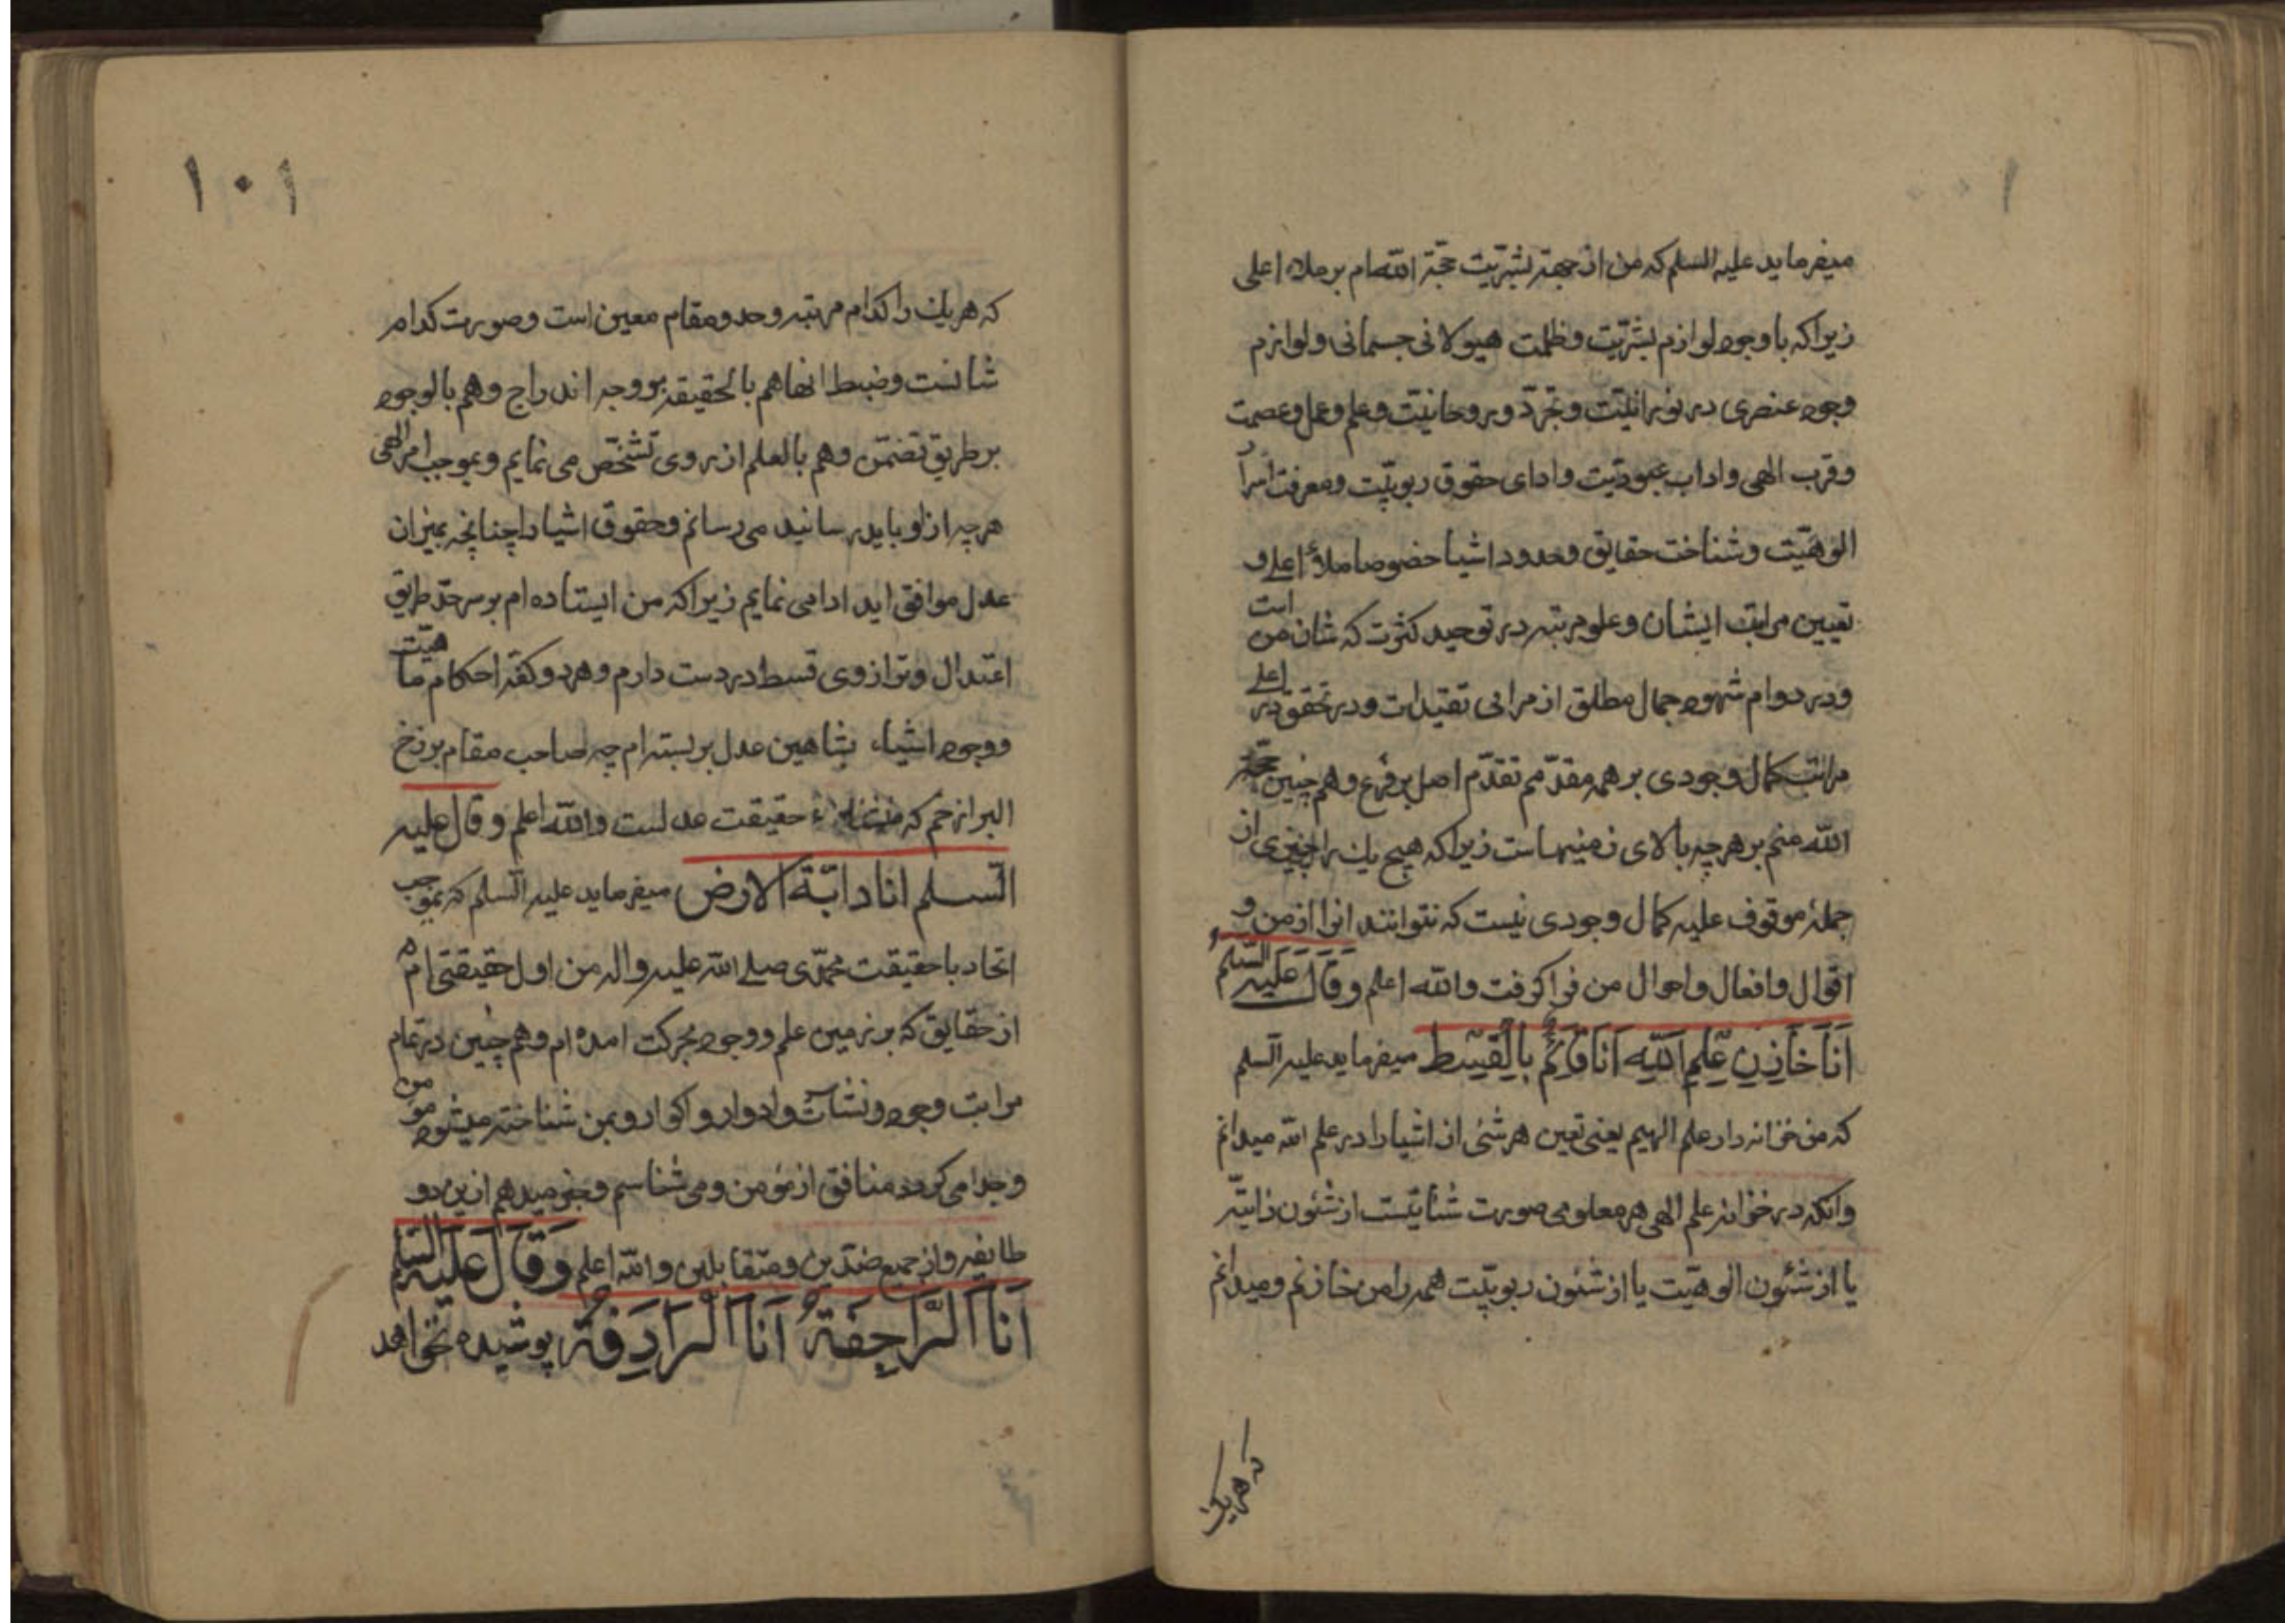 میفرماید علیه السلم که من از جهة بشریت حجة الله ام بر ملاء اعلی
زیرا که با وجود لوازم بشریت و ظلمت هیولانی جسمانی و لوازم
وجود عنصری در نورانیت و تجرد و روحانیت و علم و عمل و عصمت
و قرب الهی و اداب عبودیت و ادای حقوق ربوبیت و معرفت اسرار
الوهیت و شناخت حقایق و حدود اشیا خصوصا ملاء اعلی و
تعیین مراتب ایشان و علو مرتبه در توحید کثرت که شان من است
و در دوام شهود جمال مطلق از مرائی تقیدات و در تحقق در اعلی
مراتب کمال وجودی بر همه مقدمم تقدم اصل بر فرع و هم چنین حجة
الله منم بر هرچه بالای زمینهاست زیرا که هیچ یك را چیزی از
جمله موقوف علیه کمال وجودی نیست که نتوانند انرا از من و
اقوال و افعال و احوال من فرا کرفت والله اعلم وَقَالَ عَلَیهِ السَّلم
اَنَا خَازِنِ عِلْمِ اللّٰهِ اَنَا قَائِمٌ بِالْقِسْطِ میفرماید علیه السلم
که من خزانه دار علم الهیم یعنی تعین هر شئی از اشیا را در علم الله میدانم
وانکه در خزانه علم الهی هر معلومی صورت شانیست از شئون ذاتیه
یا از شئون الوهیت یا از شئون ربوبیت همه را من خازنم و میدانم
که هریك
١٠١
که هریك را کدام مرتبه و حد و مقام معین است و صورت کدام
شانست و ضبط انها هم بالحقیقه بر وجه اندراج و هم بالوجود
بر طریق تضمن و هم بالعلم از روی تشخص می نمایم و بموجب امر الهی
هرچه از او باید رسانید می رسانم و حقوق اشیا را چنانچه بمیزان
عدل موافق اید ادا می نمایم زیرا که من ایستاده ام بر سر حد طریق
اعتدال و ترازوی قسط در دست دارم و هر دو کفه احکام ماهیت
و وجود اشیاء بشاهین عدل بر بسته ام چه صاحب مقام برزخ
البرازخم که منشاء حقیقت عدلست والله اعلم و قال علیه
السلم انا دابة الارض میفرماید علیه السلم که بموجب
اتحاد با حقیقت محمدی صلی الله علیه واله من اول حقیقتی ام
از حقایق که بر زمین علم و وجود بحرکت امده ام و هم چنین در تمام
مراتب وجود و نشات و ادوار و اکوار و بمن شناخته میشود مومن
و جدا می کردد منافق از مؤمن و می شناسم و خبر میدهم از این دو
طایفه و از جمیع ضدین و متقابلین والله اعلم وَقَالَ عَلَیهِ السَّلم
اَنَا الرَّاجِفَةُ اَنَا الْرَادِفَةُ پوشیده نخواهد